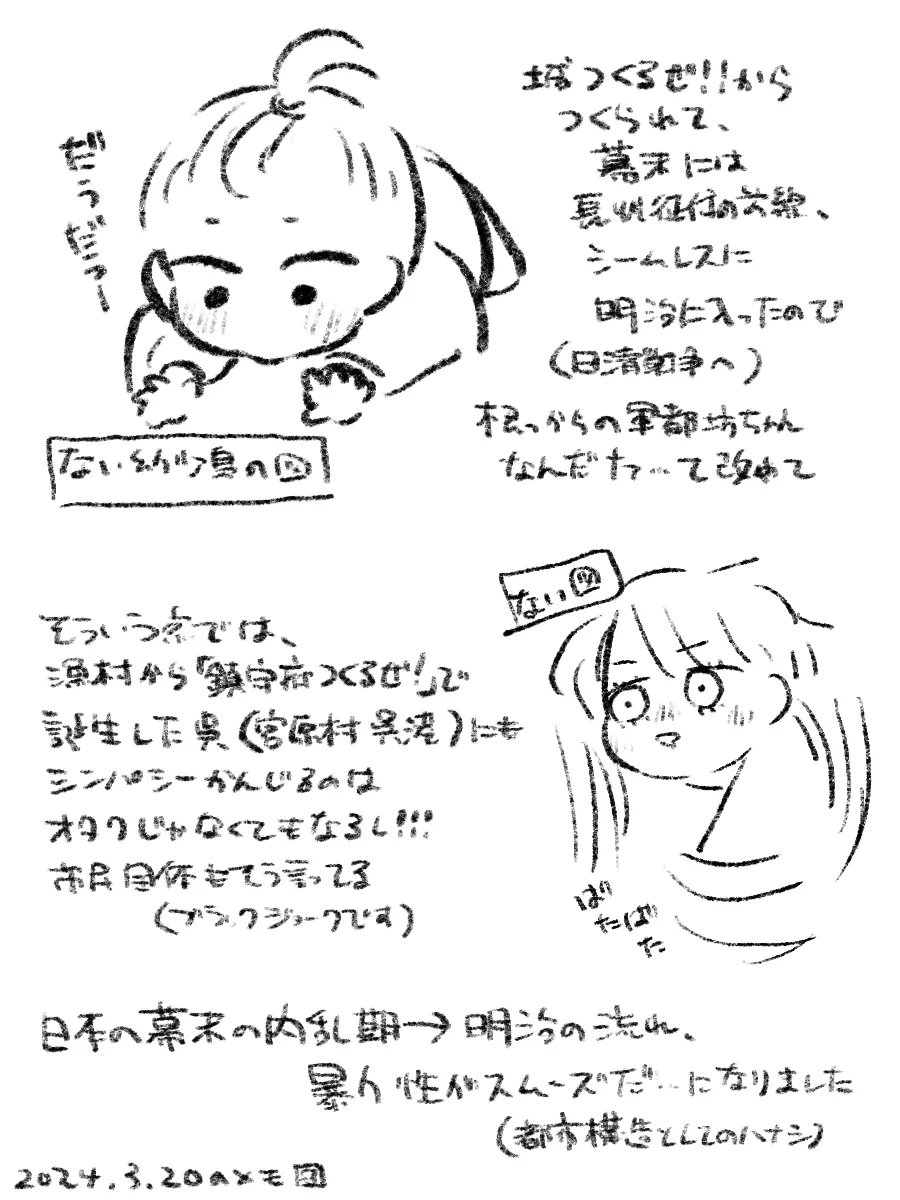 だうだうー
城つくるぜ!!から
つくられて、
幕末には
長州征伐の前線、
シームレスに
明治に入ったので
(日清戦争へ)
根っからの軍都坊ちゃん
なんだナァ…て改めて
ない図
そういう点では、
漁村から「鎮守府つくるぜ!」で
誕生した呉(宮原村 呉港)にも
シンパシーかんじるのは
オタクじゃなくてもなるし!!!
市民自体もそう言ってる
(ブラックジョークです)
ばたばた
日本の幕末の内乱期→明治の流れ、
暴力性がスムーズだ…になりました
(都市構造としてのハナシ)
2024.3.20のメモ図